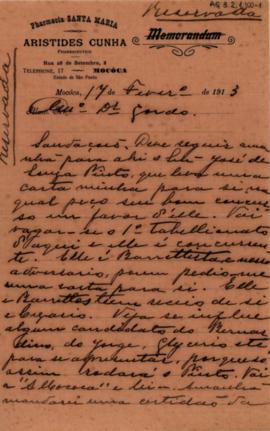 Reservada
AG 8.2.1.100-1
Pharmacia SANTA MARIA
ARISTIDES CUNHA
PHARMACEUTICO
Rua 28 de Setembro, 4
TELEPHONE, 17 — MOCÓCA
Estado de São Paulo
Memorandum
Reservada
Mocóca, 17 de Fevr° de 1913
Exmo Dr Gordo.
Saudações. Deve seguir ama
nhã para ahi o Snr José de
Souza Pinto, que leva uma
carta minha para si, na
qual peço seu bom concur
so um favor d'elle. Vai
vagar-se o 1° tabellionato
d'aqui e elle é concurren
te. Elle é Barrettista e nosso
adversario, porem pedio-me
uma carta para si. Elle
e Barrettos tem receio de si
e Cezario. Veja se influe
algum candidato do Bernar
dino, do Jorge, Glycerio etc
para se apresentar, porque só
assim rodará o Pinto. Vai
a "Mococa" e leia. Amanhã
mandarei uma certidão da